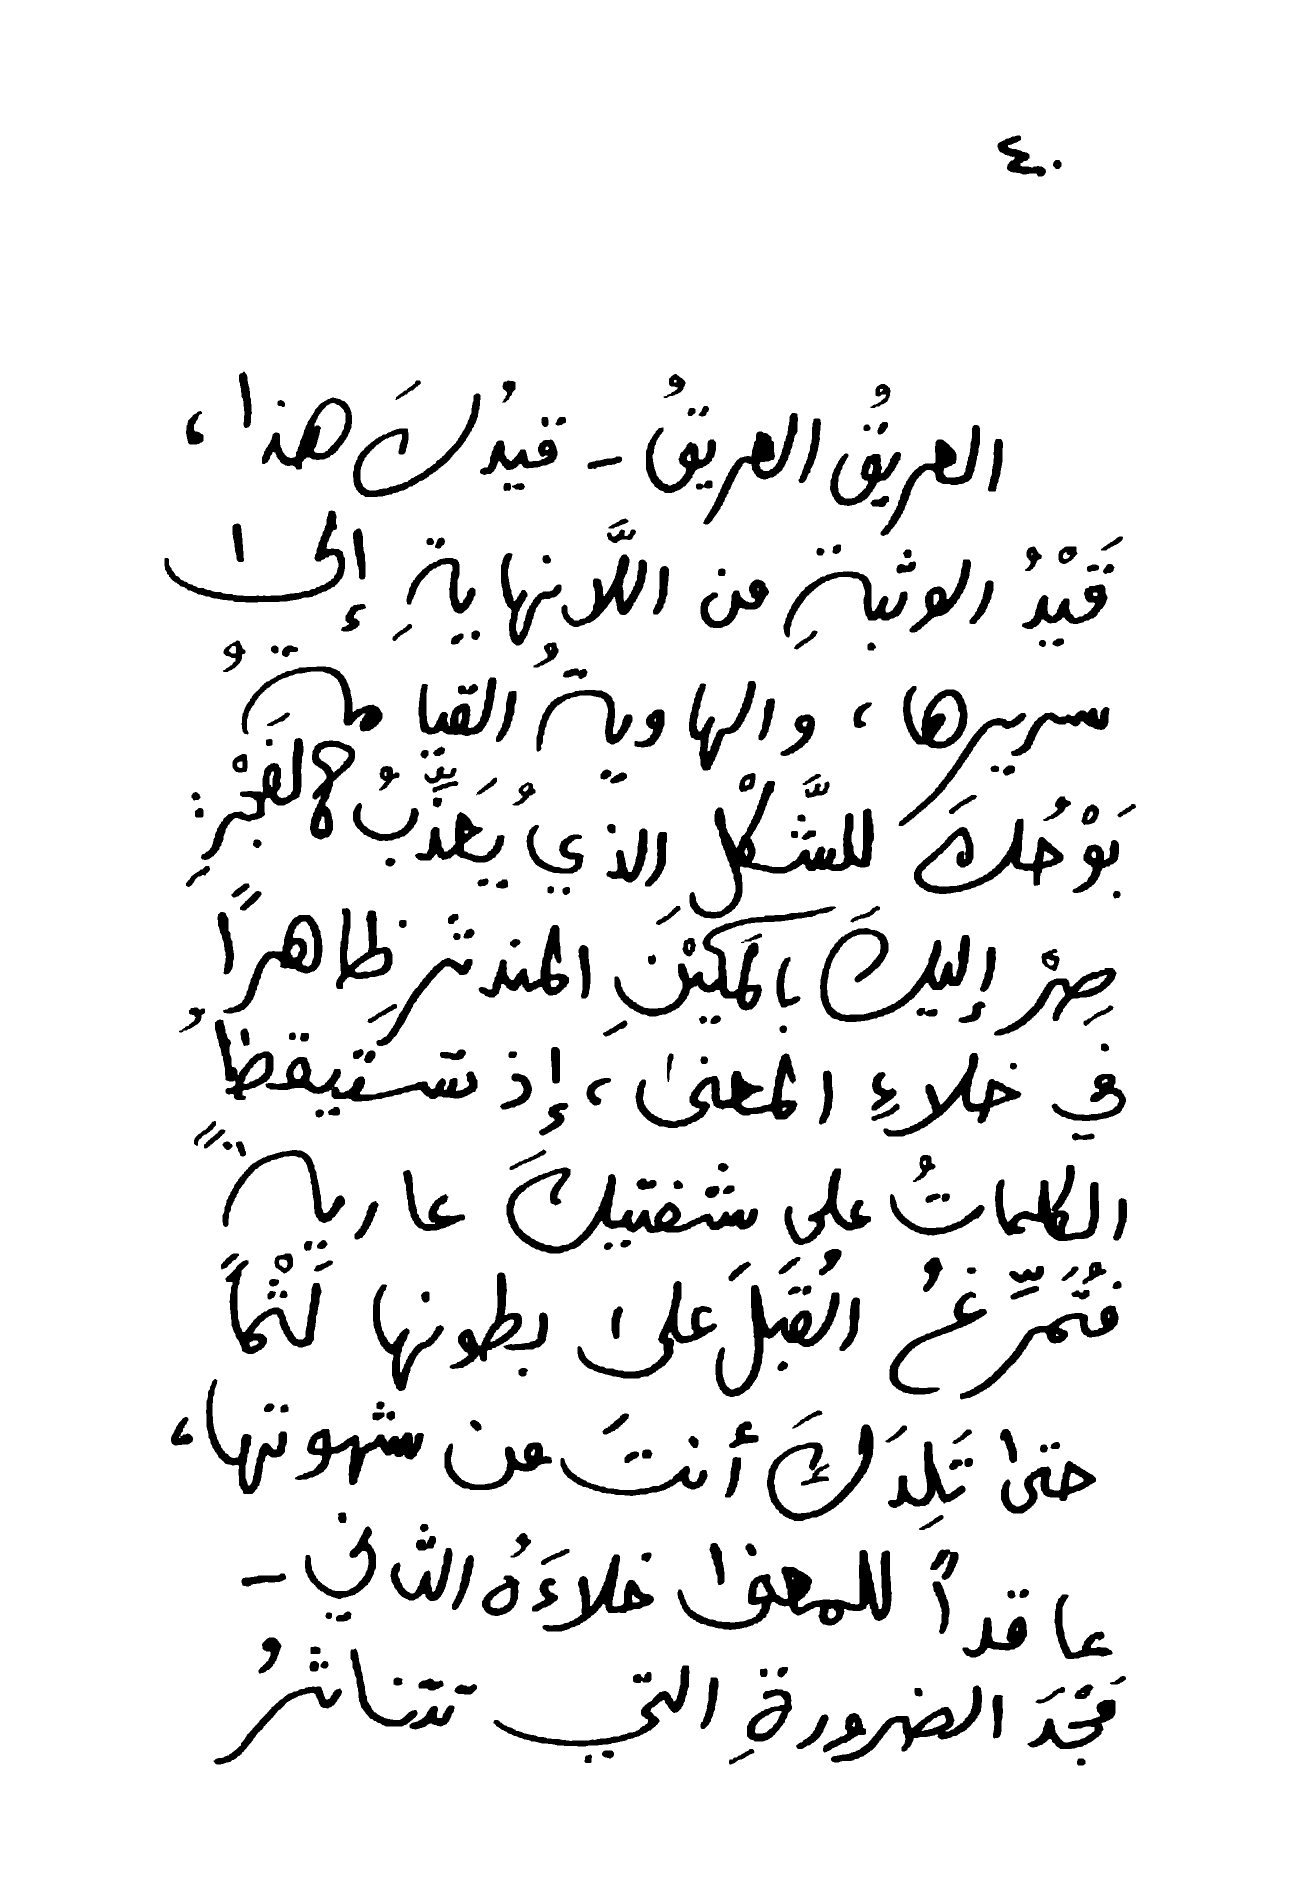 ٤٠
العريقُ العريقُ - قيدُكَ هذا،
قَيْدُ الوثبةِ من اللَّانهايةِ إلى
سريرها، والهاويةُ القيامةُ
بَوْحُكَ للشَّكْل الذي يُعَذِّبُ الفَجْرِ:
صِرْ إليكَ بالمَكيْنَ المندثرِ ظَاهراً
في خلاءِ المعنى، إذ تستيقظُ
الكلماتُ على شفتيكَ عاريةً
فتُمَرِّغُ القُبَلَ على بطونها لَثْماً
حتى تَلِدَكَ أنتَ من شهوتها،
عاقداً للمعنى خلاءَهُ الثاني -
مَجْدَ الضرورةِ التي تتناثرُ